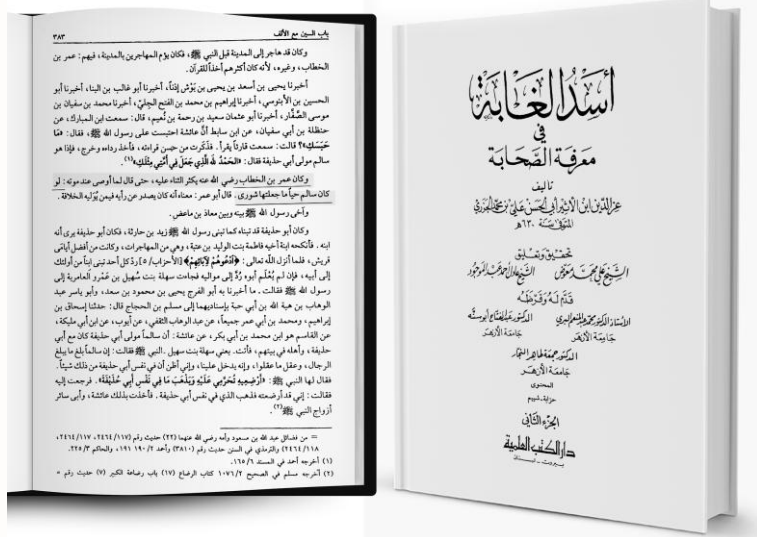 باب السين مع الألف ٣٨٣
وكان قد هاجر إلى المدينة قبل النبي ﷺ، فكان يؤم المهاجرين بالمدينة، فيهم: عمر بن
الخطاب، وغيره، لأنه كان أكثرهم أخذاً للقرآن.
أخبرنا يحيى بن أسعد بن يحيى بن بَوْش إذناً، أخبرنا أبو غالب بن البنا، أخبرنا أبو
الحسين بن الأبنوسي، أخبرنا إبراهيم بن محمد بن الفتح الجِلّي، أخبرنا محمد بن سفيان بن
موسى الصَّفَّار، أخبرنا أبو عثمان سعيد بن رحمة بن نُعيم، قال: سمعت ابن المبارك، عن
حنظلة بن أبي سفيان، عن ابن سابط أنَّ عائشة احتبست على رسول الله ﷺ، فقال: «مَا
حَبَسَكِ»؟ قالت: سمعت قارئاً يقرأ. فذكَرت من حسن قراءته، فأخذ رداءه وخرج، فإذا هو
سالم مولى أبي حذيفة فقال: «الحَمْدُ لله الَّذِي جَعَلَ فِي أُمَّتِي مِثْلَكَ»(١).
وكان عمر بن الخطاب رضي الله عنه يكثر الثناء عليه، حتى قال لما أوصى عند موته: لو
كان سالم حياً ما جعلتها شورى. قال أبو عمر: معناه أنه كان يصدر عن رأيه فيمن يُوَلّيه الخلافة.
وآخى رسول الله ﷺ بينه وبين معاذ بن ماعض.
وكان أبو حذيفة قد تبناه كما تبنى رسول الله ﷺ زيد بن حارثة، فكان أبو حذيفة يرى أنه
ابنه. فأنكحه ابنة أخيه فاطمة بنت الوليد بن عتبة، وهي من المهاجرات، وكانت من أفضل أيامَى
قريش، فلما أنزل الله تعالى: ﴿ادْعُوهُمْ لآبَائِهِمْ﴾ [الأحزاب/٥] ردّ كل أحد تبنى ابناً من أولئك
إلى أبيه، فإن لم يُعْلَم أبوه رُدَّ إلى مواليه فجاءت سهلة بنت سُهيل بن عَمْرو العامرية إلى
رسول الله ﷺ فقالت. ما أخبرنا به أبو الفرج يحيى بن محمود بن سعد، وأبو ياسر عبد
الوهاب بن هبة الله بن أبي حبة بإسناديهما إلى مسلم بن الحجاج قال: حدثنا إسحاق بن
إبراهيم، ومحمد بن أبي عمر جميعاً، عن عبد الوهاب الثقفي، عن أيوب، عن ابن أبي مليكة،
عن القاسم هو ابن محمد بن أبي بكر، عن عائشة: أن سالماً مولى أبي حذيفة كان مع أبي
حذيفة، وأهله في بيتهم، فأتت. يعني سهلة بنت سهيل. النبي ﷺ فقالت: إن سالماً بلغ ما يبلغ
الرجال، وعقل ما عقلوا، وإنه يدخل علينا، وإني أظن أن في نفس أبي حذيفة من ذلك شيئاً.
فقال لها النبي ﷺ: «أَرْضِعِيهِ تَحْرُمِي عَلَيْهِ وَيَذْهَبَ مَا فِي نَفْسِ أَبِي حُذَيْفَةَ». فرجعت إليه
فقالت: إني قد أرضعته فذهب الذي في نفس أبي حذيفة. فأخذت بذلك عائشة، وأبى سائر
أزواج النبي ﷺ(٢).
= من فضائل عبد الله بن مسعود وأمه رضي الله عنهما (٢٢) حديث رقم (١١٧/٢٤٦٤، ١١٧/٢٤٦٤،
١١٨/٢٤٦٤) والترمذي في السنن حديث رقم (٣٨١٠) وأحمد ٢/١٩٠، ١٩١ والحاكم ٣/٢٢٥.
(١) أخرجه أحمد في المسند ٦/١٦٥.
(٢) أخرجه مسلم في الصحيح ٢/١٠٧٦ كتاب الرضاع (١٧) باب رضاعة الكبير (٧) حديث رقم =
أسد الغابة
في
معرفة الصحابة
تأليف
عز الدين ابن الأثير أبي الحسن علي بن محمد الجزري
المتوفى سنة ٦٣٠ هـ
تحقيق وتعليق
الشيخ علي محمد معوض الشيخ عادل أحمد عبد الموجود
قدم له وقرظه
الأستاذ الدكتور محمد عبد المنعم البري الدكتور عبد الفتاح أبو سنة
جامعة الأزهر جامعة الأزهر
الدكتور جمعة طاهر النجار
جامعة الأزهر
المحتوى
الجزء الثاني
دار الكتب العلمية
بيروت - لبنان